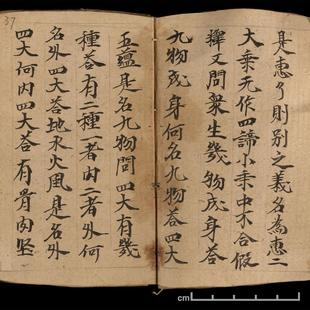 是惠了則别之義名為惠二
大乘无作四諦小乘中不合假
釋又問衆生幾物成身荅
九物成身何名九物荅四大
五蘊是名九物問四大有幾
種荅有二種一者内二者外何
名外四大荅地水火風是名外
四大何内四大荅有骨肉堅
37
cm